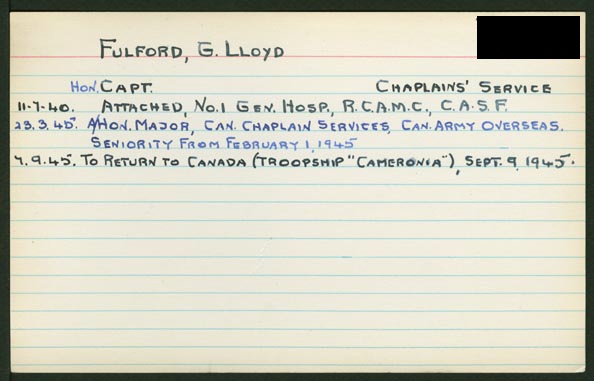 FULFORD, G. LLOYD
HON. CAPT. CHAPLAINS' SERVICE
11-7-40. ATTACHED, NO.1 GEN. HOSP., R.C.A.M.C., C.A.S.F.
23.3.45. A/HON. MAJOR, CAN. CHAPLAIN SERVICES, CAN. ARMY OVERSEAS.
SENIORITY FROM FEBRUARY 1, 1945
7.9.45. TO RETURN TO CANADA (TROOPSHIP "CAMERONIA"), SEPT. 9, 1945.